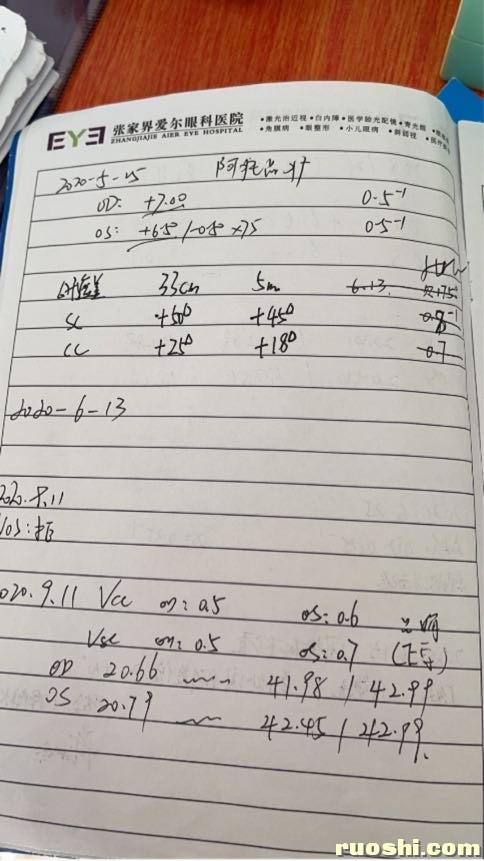 EYE 张家界爱尔眼科医院
ZHANGJIAJIE AIER EYE HOSPITAL
•激光治近视 •白内障 •医学验光配镜 •青光眼
•角膜病 •眼整形 •小儿眼病 •斜弱视
2020-5-25 阿托品扩
OD: +7.00 0.5⁻¹
OS: +6.50/-0.50×75 0.5⁻¹
33cm 5m 6.13
SC +50△ +45△
CC +25△ +18△ 0.7
2020-6-13
2020.8.11
2020.9.11 Vcc OD: 0.5 OS: 0.6
Vsc OD: 0.5 OS: 0.7
OD 20.66 41.98 / 42.99
OS 20.79 42.45 / 42.99
ruoshi.com